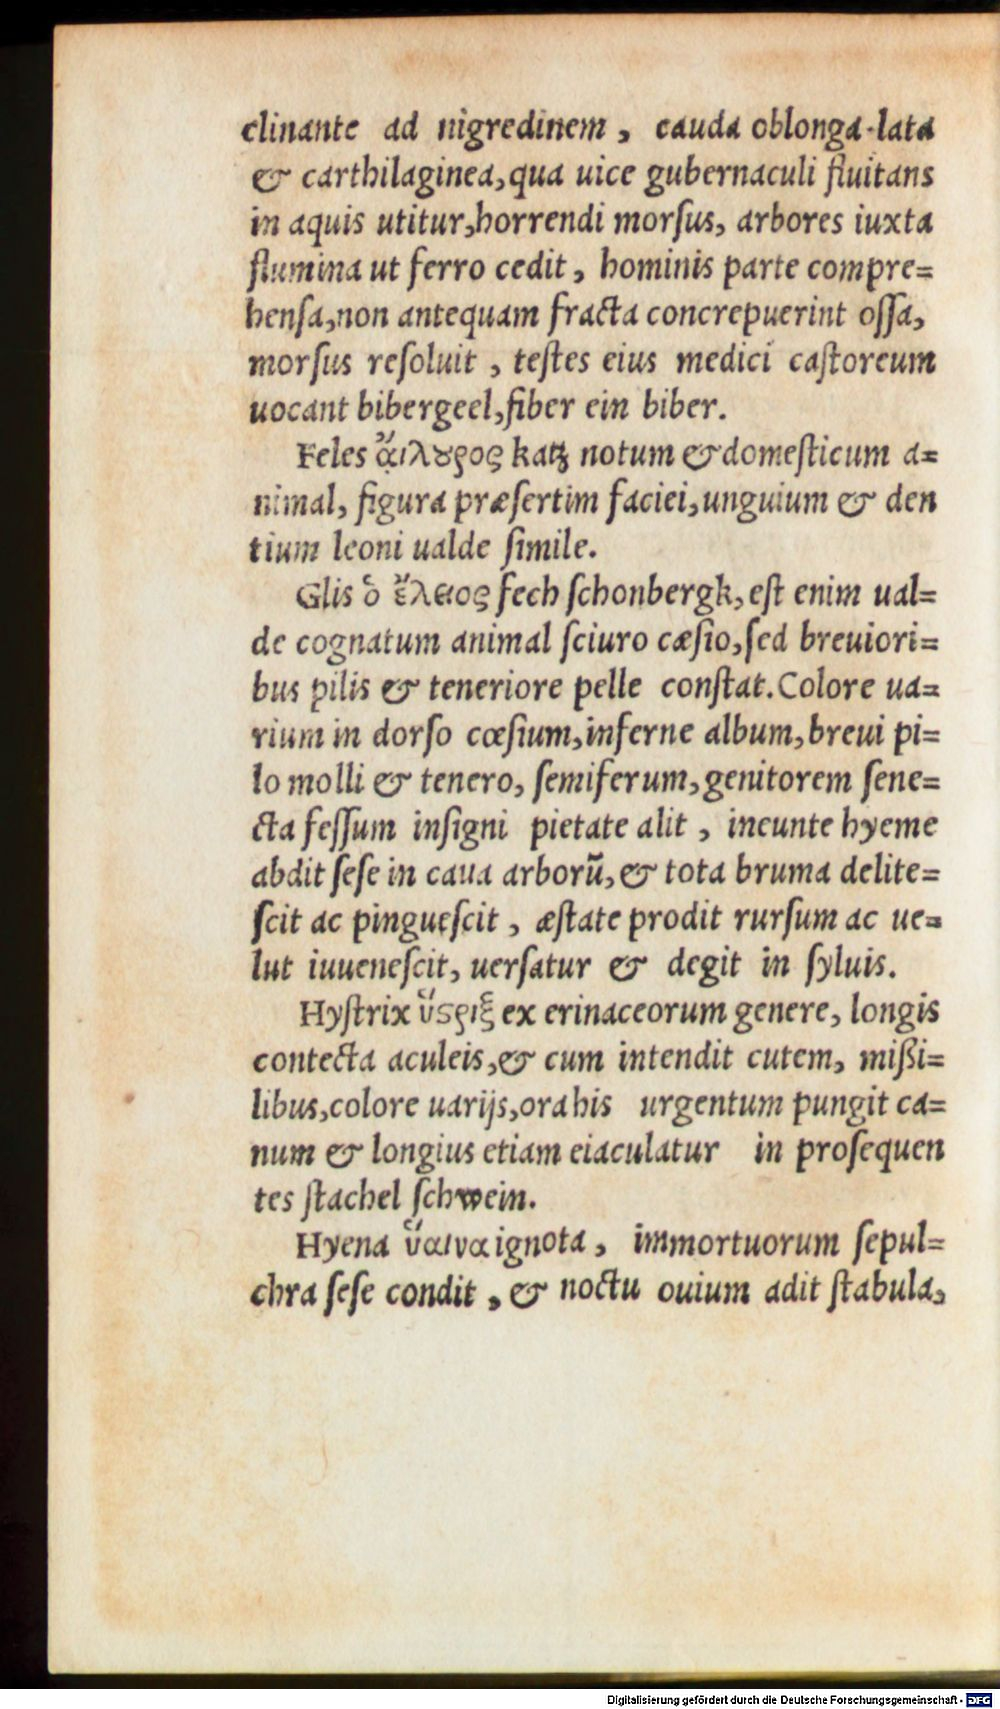 clinante ad nigredinem, cauda oblonga·lata
& carthilaginea,qua uice gubernaculi fluitans
in aquis utitur,horrendi morſus, arbores iuxta
flumina ut ferro cedit, hominis parte compre=
henſa,non antequam fracta concrepuerint oſſa,
morſus reſoluit, teſtes eius medici caſtoreum
uocant bibergeel,fiber ein biber.
Feles ἄιλȣρος katz notum & domeſticum a=
nimal, figura præſertim faciei,unguium & den
tium leoni ualde ſimile.
Glis ὁ ἔλειος fech ſchonbergk,eſt enim ual=
de cognatum animal ſciuro cæſio,ſed breuiori=
bus pilis & teneriore pelle conſtat.Colore ua=
rium in dorſo cœſium,inferne album,breui pi=
lo molli & tenero, ſemiferum,genitorem ſene=
cta feſſum inſigni pietate alit, ineunte hyeme
abdit ſeſe in caua arborū,& tota bruma delite=
ſcit ac pingueſcit, æſtate prodit rurſum ac ue=
lut iuueneſcit, uerſatur & degit in ſyluis.
Hyſtrix ὕϛριξ ex erinaceorum genere, longis
contecta aculeis,& cum intendit cutem, mißi=
libus,colore uarijs,ora his urgentum pungit ca=
num & longius etiam eiaculatur in proſequen
tes ſtachel ſchwein.
Hyena ὕαινα ignota, immortuorum ſepul=
chra ſeſe condit, & noctu ouium adit ſtabula,
Digitalisierung gefördert durch die Deutsche Forschungsgemeinschaft - DFG